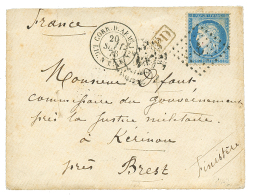 France
CORR. D'ARMÉES
PD
Monsieur
Commissaire du gouvernement
près la justice militaire.
à
Kérinou
près Brest
Finistère